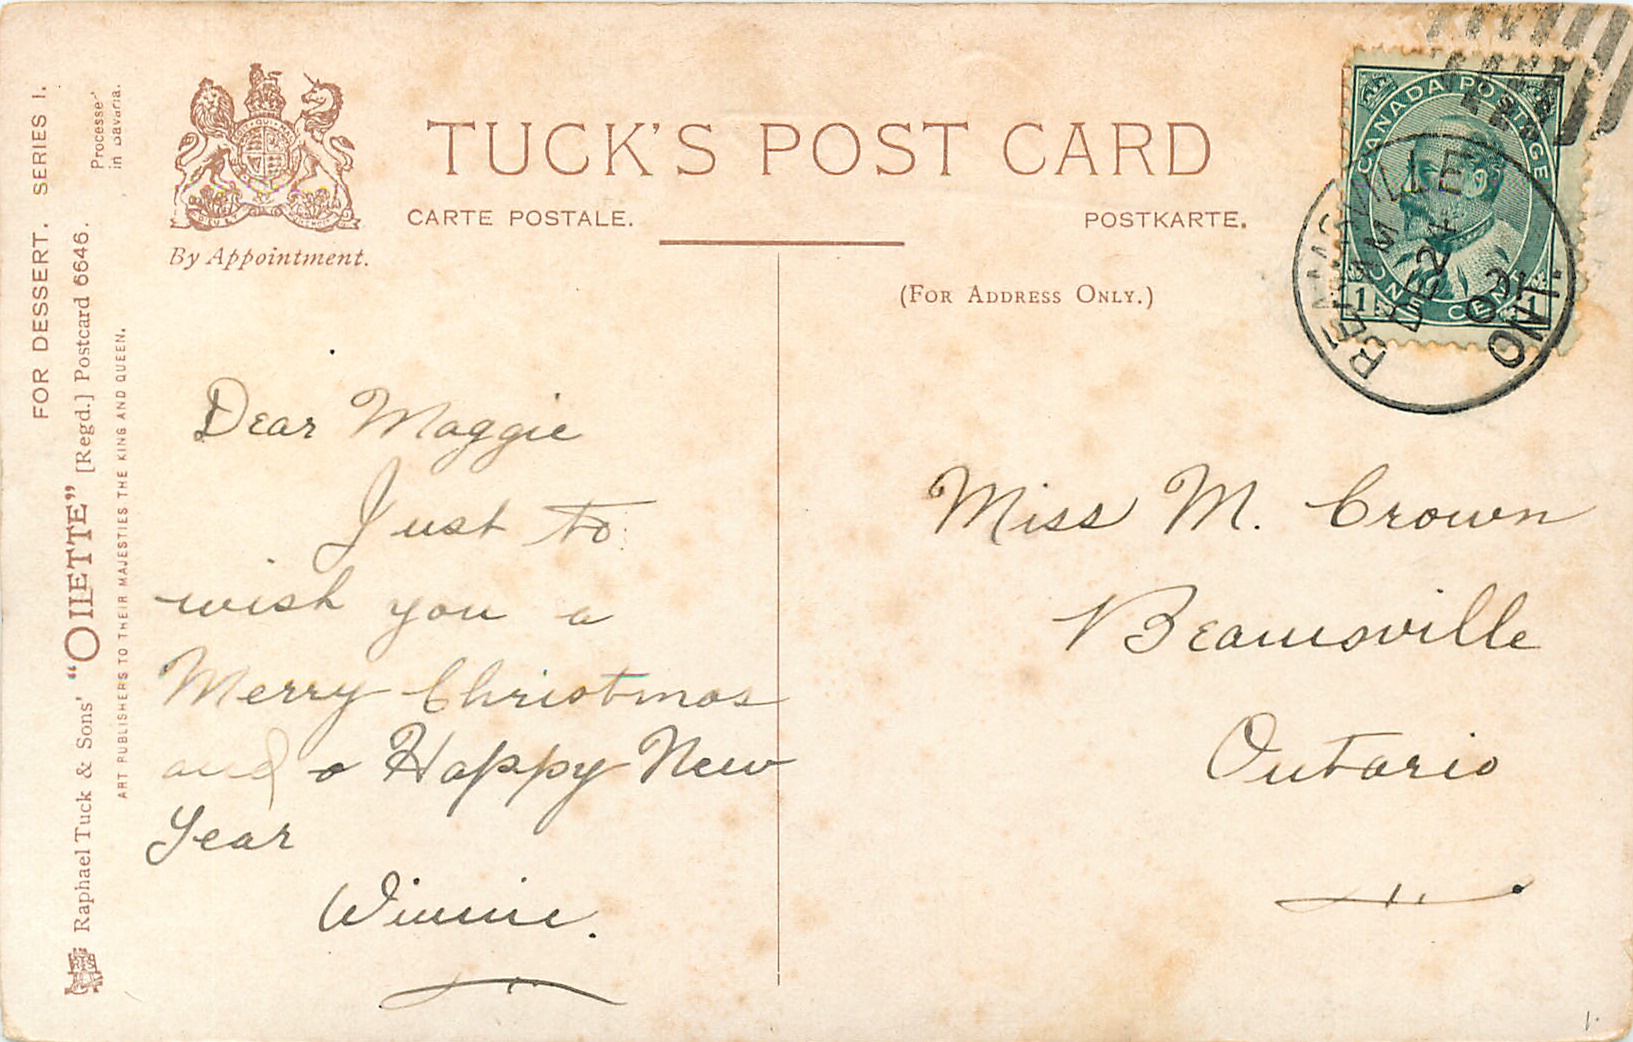 FOR DESSERT. SERIES I.
Raphael Tuck & Sons' "OILETTE" [Regd.] Postcard 6646.
ART PUBLISHERS TO THEIR MAJESTIES THE KING AND QUEEN.
in Bavaria.
By Appointment.
TUCK'S POST CARD
CARTE POSTALE.
POSTKARTE.
(FOR ADDRESS ONLY.)
CANADA POSTAGE
1 CENT 1
BEAMSVILLE
AM
24
ONT.
Dear Maggie
Just to
wish you a
Merry Christmas
and a Happy New
Year
Winnie.
Miss M. Crown
Beamsville
Ontario